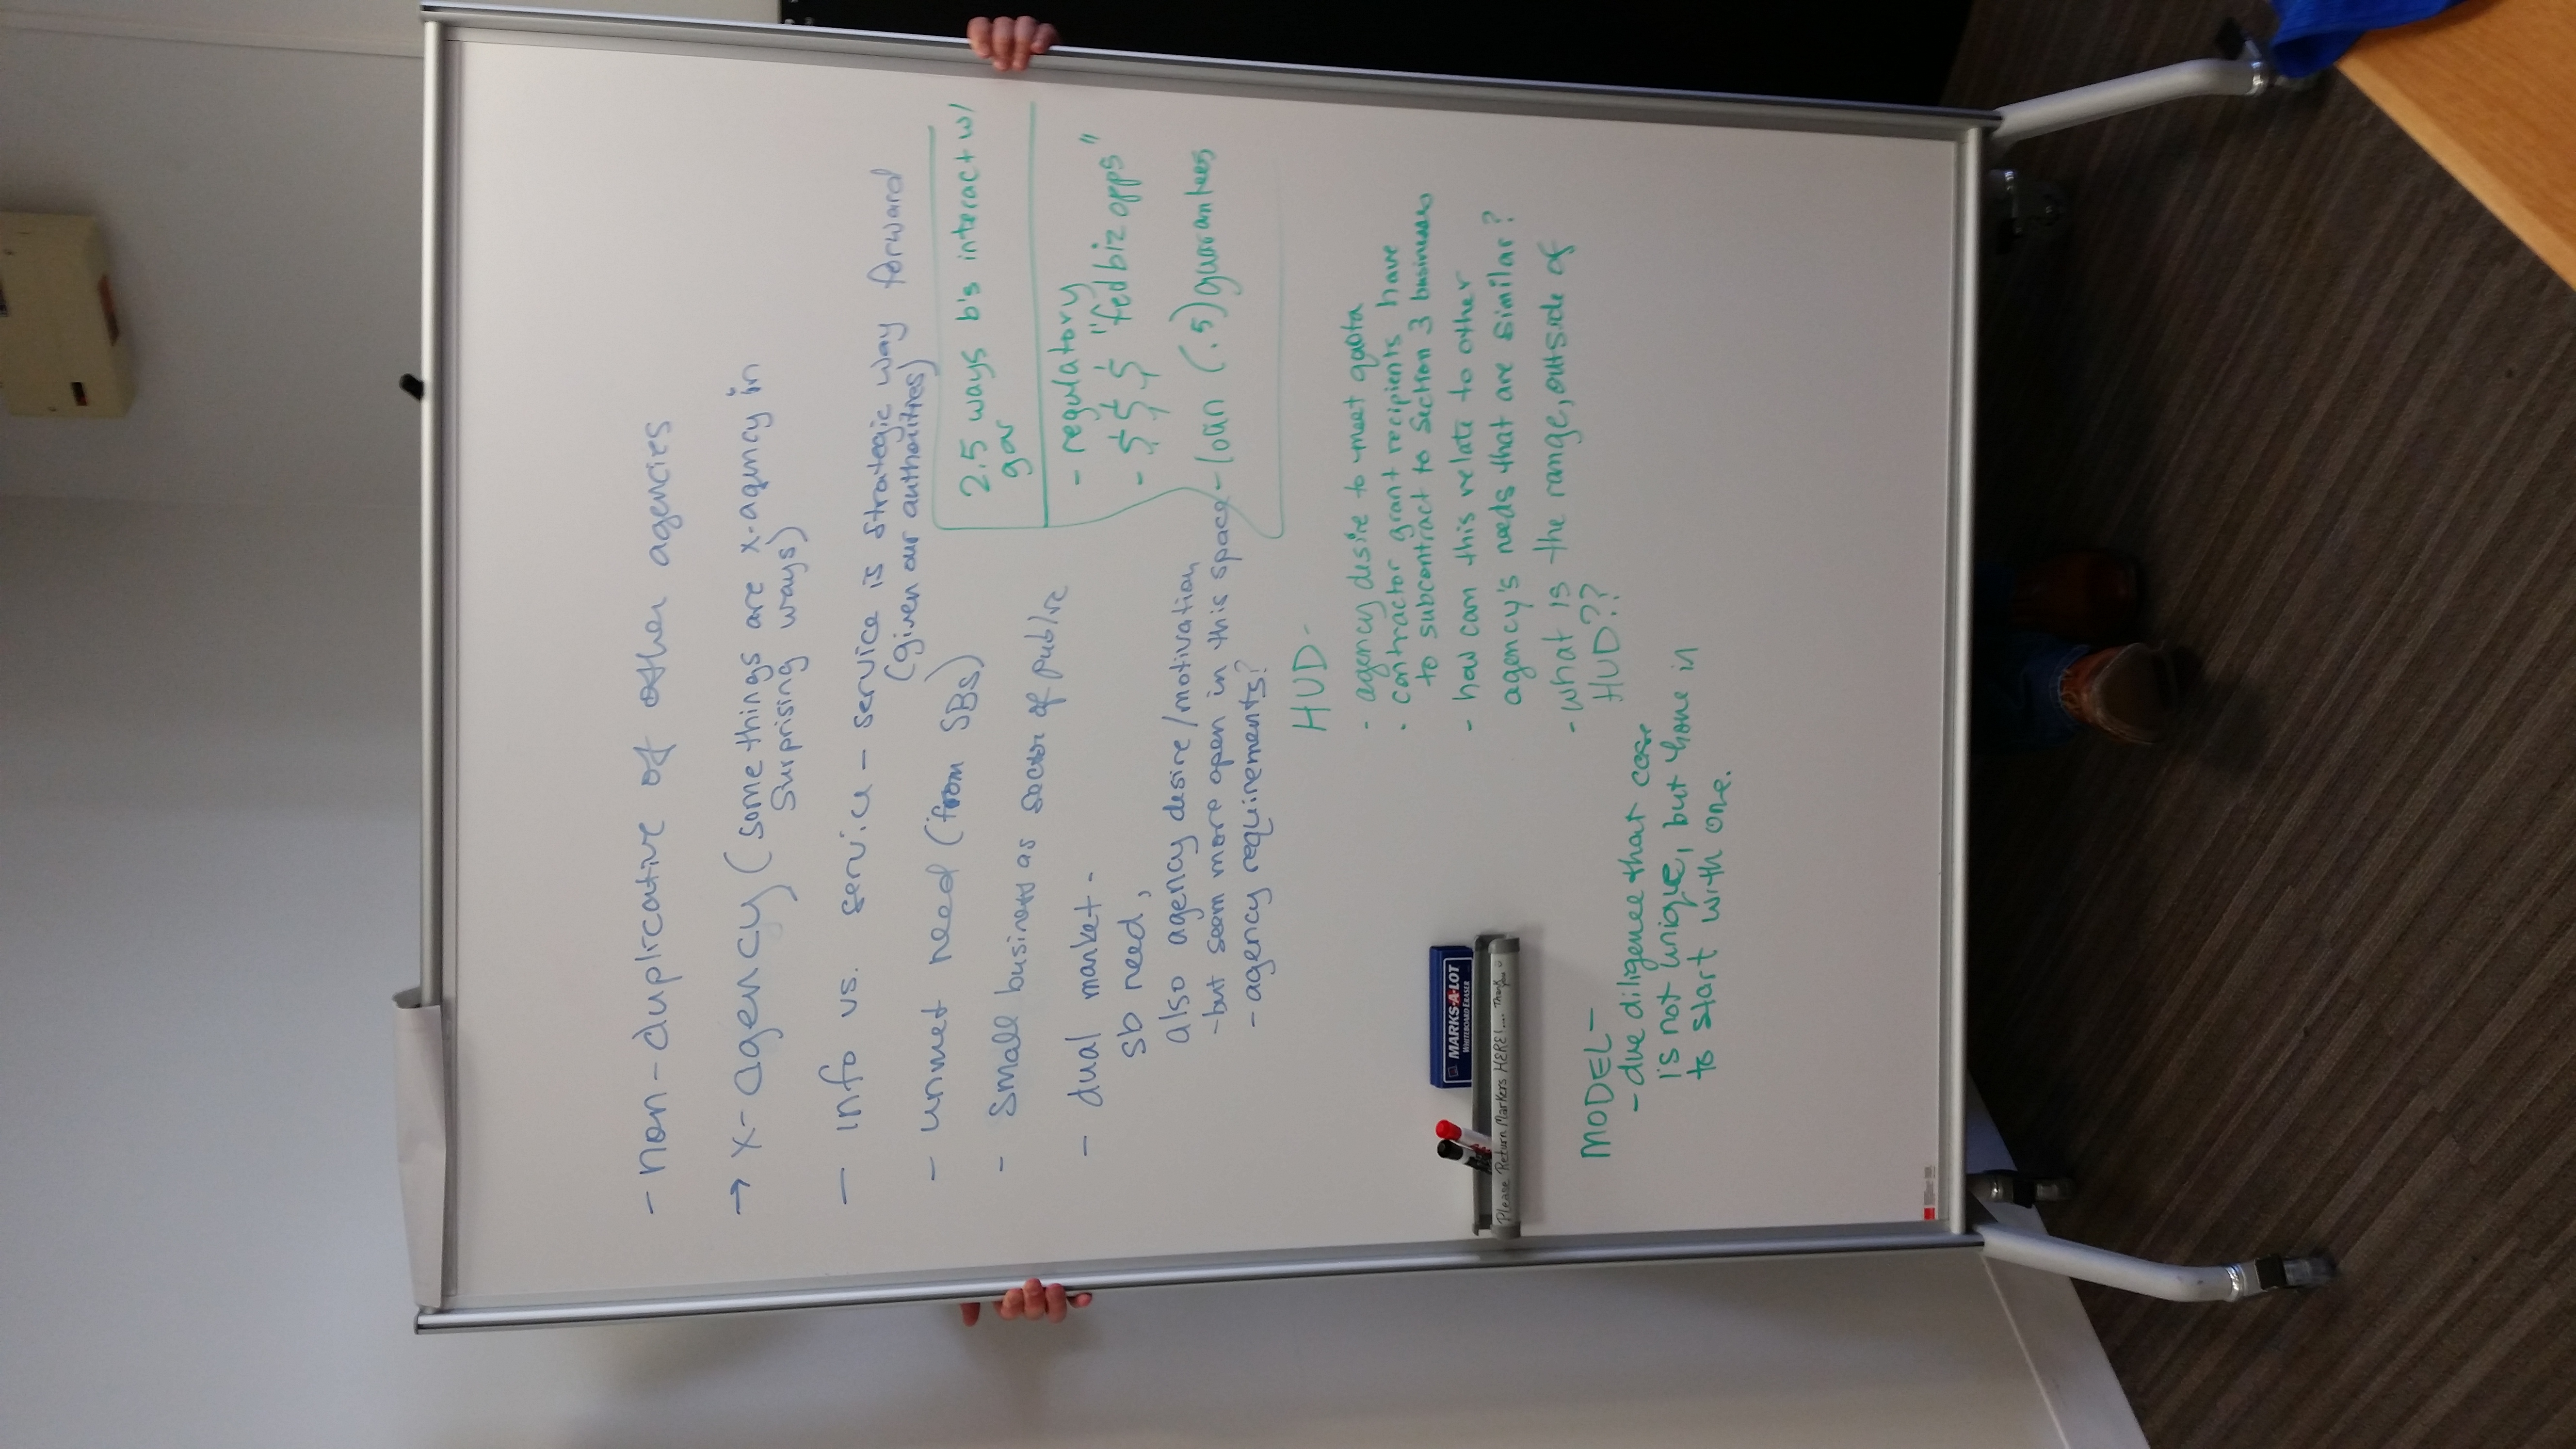 - non-duplicative of other agencies
→ x-agency (some things are x-agency in
surprising ways)
- info vs. service - service is strategic way forward
(given our authorities)
- unmet need (from SBs)
- small business as sector of public
- dual market -
sb need,
also agency desire/motivation
- but seem more open in this space
- agency requirements?
2.5 ways b's interact w/
gov
- regulatory
- $ $ $ "fedbizopps"
- loan (.5) guarantees
HUD-
- agency desire to meet quota
- contractor grant recipients have
to subcontract to Section 3 businesses
- how can this relate to other
agency's needs that are similar?
- what is the range, outside of
HUD??
MARKS-A-LOT
WHITEBOARD ERASER
Please Return Markers HERE!.... Thank you
MODEL-
- due diligence that case
is not unique, but hone in
to start with one.